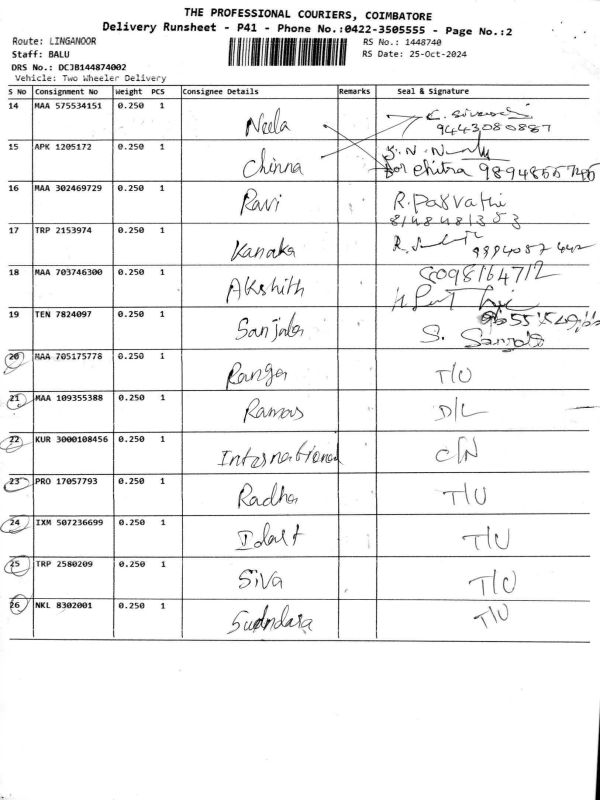 THE PROFESSIONAL COURIERS, COIMBATORE
Delivery Runsheet - P41 - Phone No.:0422-3505555 - Page No.:2
Route: LINGANOOR RS No.: 1448740
Staff: BALU RS Date: 25-Oct-2024
DRS No.: DCJB144874002
Vehicle: Two Wheeler Delivery
S No Consignment No Weight PCS Consignee Details Remarks Seal & Signature
14 MAA 575534151 0.250 1 Neela
9443080887
15 APK 1205172 0.250 1 Chinna
for chitra
16 MAA 302469729 0.250 1 Ravi R. Parvathi
8148481353
17 TRP 2153974 0.250 1 Kanaka R.
18 MAA 703746300 0.250 1 Akshith 8098164712
19 TEN 7824097 0.250 1 Sanjala S.
20 MAA 705175778 0.250 1 Ranga T/U
21 MAA 109355388 0.250 1 Ramas D/L
22 KUR 3000108456 0.250 1 International C/N
23 PRO 17057793 0.250 1 Radha T/U
24 IXM 507236699 0.250 1 T/U
25 TRP 2580209 0.250 1 Siva T/U
26 NKL 8302001 0.250 1 T/U